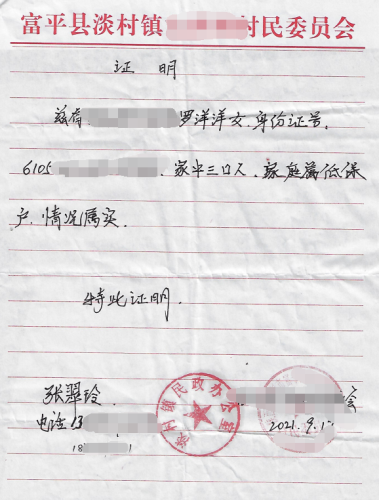 富平县淡村镇 村民委员会
证明
兹有 罗洋洋文,身份证号,
6105 ,家中三口人,家庭属低保
户,情况属实.
特此证明.
张翠玲
会
电话13
2021.9.1
18
淡村镇民政办公室